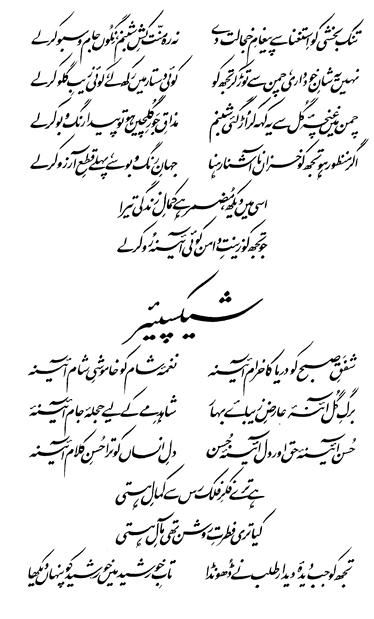 تنک بخشی کو استغنا سے پیغامِ خجالت دے نہ رہ منت کشِ شبنم نگوں جام و سبو کر لے
نہیں یہ شانِ خودداری، چمن سے توڑ کر تجھ کو کوئی دستار میں رکھ لے، کوئی زیبِ گلو کر لے
چمن میں غنچۂ گل سے یہ کہہ کر اڑ گئی شبنم مذاقِ جورِ گلچیں ہو تو پیدا رنگ و بو کر لے
اگر منظور ہو تجھ کو خزاں ناآشنا رہنا جہانِ رنگ و بو سے پہلے قطعِ آرزو کر لے
اسی میں دیکھ، مضمر ہے کمالِ زندگی تیرا
جو تجھ کو زینتِ دامن کوئی آئینہ رو کر لے
شیکسپیئر
شفقِ صبح کو دریا کا خرام آئینہ نغمۂ شام کو خاموشیِ شام آئینہ
برگِ گل آئنۂ عارضِ زیبائے بہار شاہدِ مے کے لیے حجلۂ جام آئینہ
حسن آئینۂ حق اور دل آئینۂ حسن دلِ انساں کو ترا حسنِ کلام آئینہ
ہے ترے فکرِ فلک رس سے کمالِ ہستی
کیا تری فطرتِ روشن تھی مآلِ ہستی
تجھ کو جب دیدۂ دیدار طلب نے ڈھونڈا تابِ خورشید میں خورشید کو پنہاں دیکھا